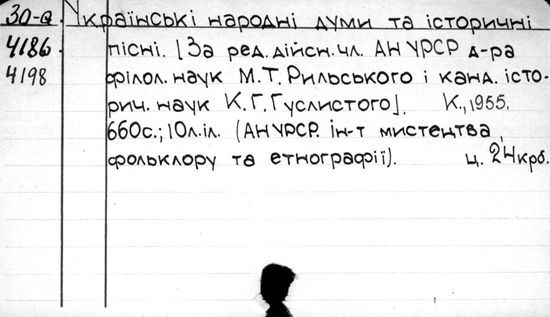 30-а Українські народні думи та історичні
4186 пісні. [За ред. дійсн. чл. АН УРСР д-ра
4198 філол. наук М.Т. Рильського і канд. істо-
рич. наук К.Г. Гуслистого]. К., 1955.
660с.; 10л.іл. (АН УРСР. ін-т мистецтва,
фольклору та етнографії). ц. 24крб.